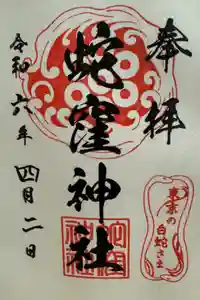 奉拝
蛇窪神社
令和六年四月二日
東京の
白蛇さま